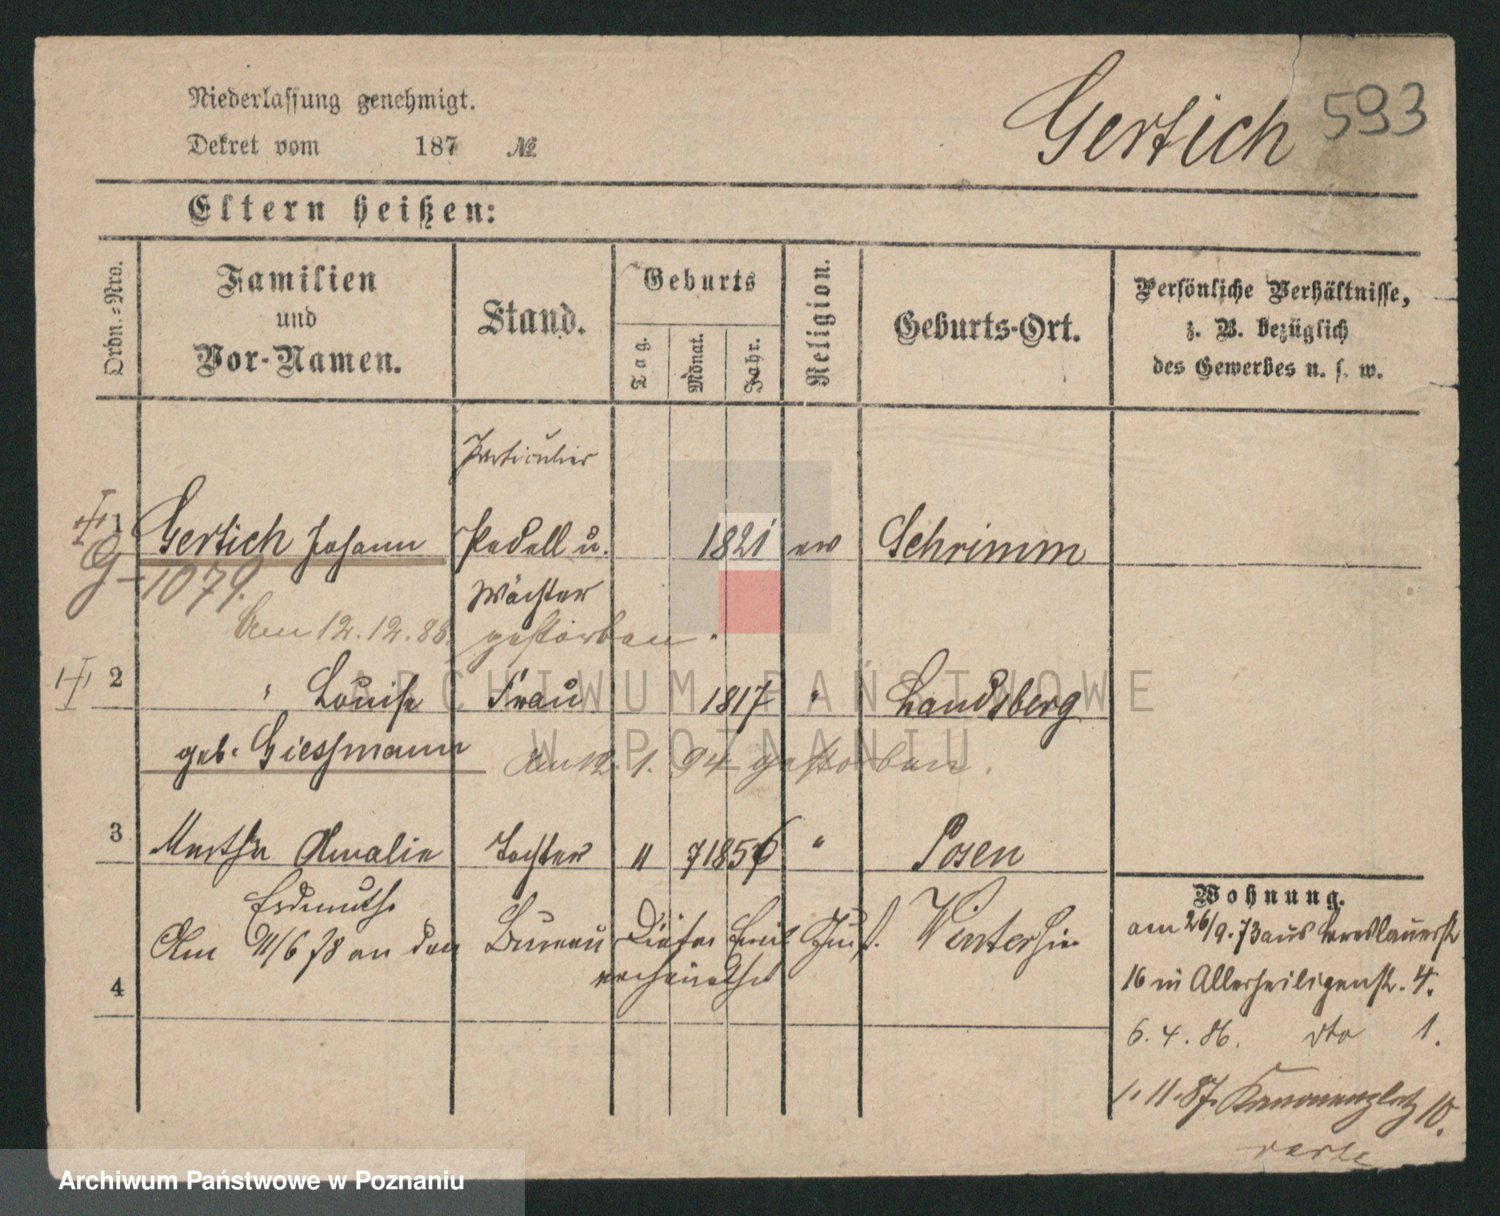 Niederlassung genehmigt.
Gertich 593
Dekret vom 187 №
Eltern heißen:
Ordn.-Nro.
Familien und Vor-Namen.
Stand.
Geburts
Tag.
Monat.
Jahr.
Religion.
Geburts-Ort.
Persönliche Verhältnisse, z. B. bezüglich des Gewerbes u. s. w.
Particulier
1 Gertich Johann Pedell u. 1821 ev Schrimm
G-1079. Wächter
Am 12.12.88. gestorben.
2 " Louise Frau 1817 " Landsberg
geb. Giessmann Am 12.1.94 gestorben.
3 Martha Amalie Tochter 11 7 1856 " Posen
Erdmuthe
Am 11/6 78 an den Bureau Diätar Emil Winter
4
Wohnung.
am 26/9.73 aus Breslauerst
16 in Allerheiligenstr. 4.
6.4.86. dto 1.
1.11.87. Kanonenplatz 10.
verte
ARCHIWUM PAŃSTWOWE
W POZNANIU
Archiwum Państwowe w Poznaniu